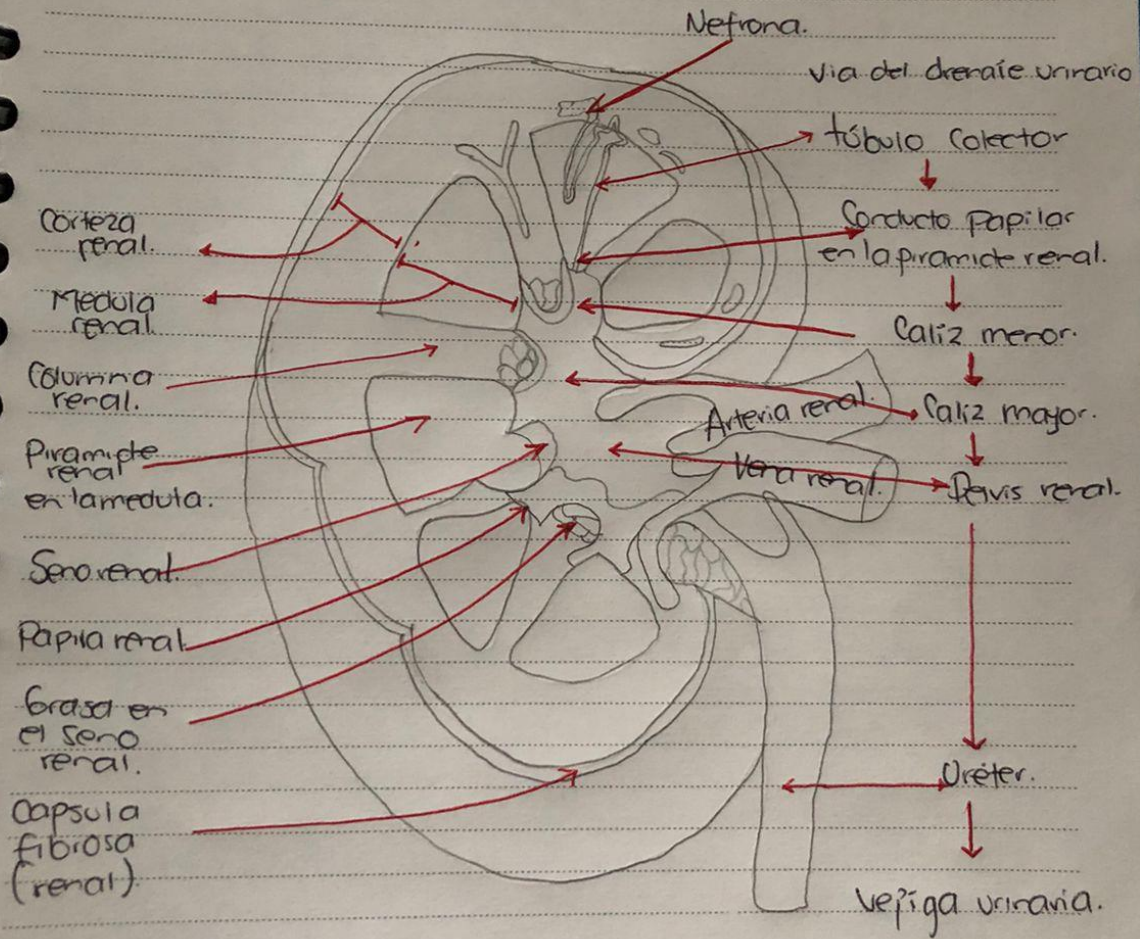 Nefrona.
Via del drenaje urinario
túbulo colector
Conducto papilar
en la piramide renal.
Caliz menor.
Caliz mayor.
Pelvis renal.
Uréter.
vejiga urinaria.
Arteria renal.
Vena renal.
Corteza
renal.
Medula
renal
Columna
renal.
Piramide
renal
en la medula.
Seno renal.
Papila renal
Grasa en
el seno
renal.
Capsula
fibrosa
(renal)